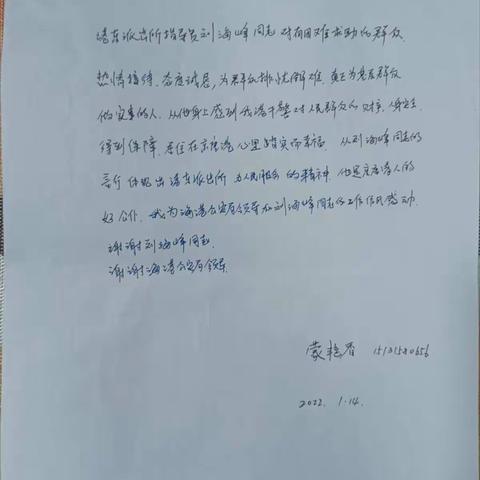 港东派出所指导员刘海峰同志对有困难求助的群众
热情接待、态度诚恳,为群众排忧解难,真正为老百群众
做实事的人,从他身上感到我港干警对人民群众的
得到保障,居住在京唐港心里踏实而幸福,从刘海峰同志的
言行体现出港东派出所为人民服务的精神,他是京唐港人的
好公仆,我为海港公安局领导及刘海峰同志的工作作风感动
谢谢刘海峰同志,
谢谢海港公安局领导
蒙艳香 15131580656
2022. 1.14.